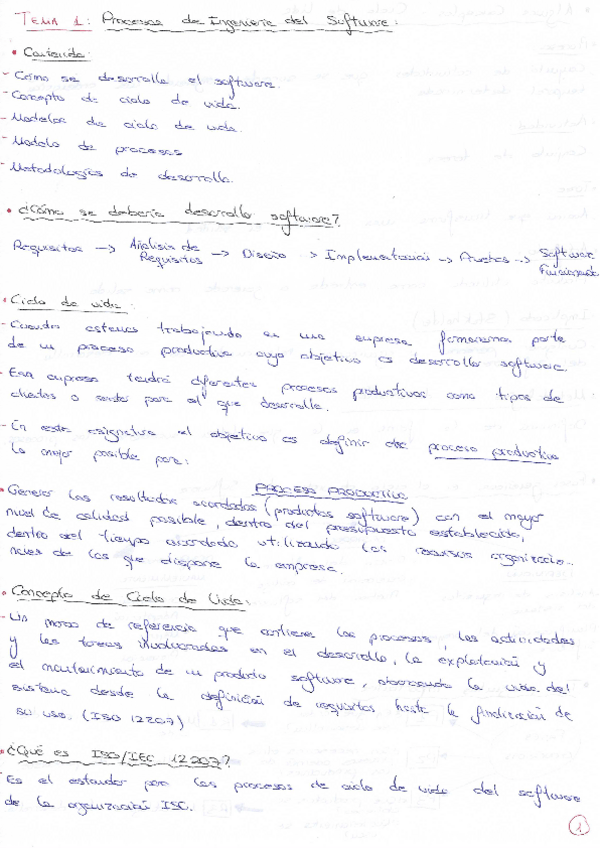 TEMA 1: Procesos de Ingeniería del Software:
• Contenido:
- Cómo se desarrolla el software.
- Concepto de ciclo de vida.
- Modelos de ciclo de vida.
- Modelo de procesos
- Metodologías de desarrollo.
• ¿Cómo se debería desarrollo software?
Requisitos → Análisis de Requisitos → Diseño → Implementación → Pruebas → Software Funcionando
• Ciclo de vida:
- Cuando estemos trabajando en una empresa formaremos parte
de un proceso productivo cuyo objetivo es desarrollar software.
- Esa empresa tendrá diferentes procesos productivos como tipos de
clientes o sector para el que desarrolle.
- En esta asignatura el objetivo es definir ese proceso productivo
lo mejor posible para:
PROCESO PRODUCTIVO
• Generar los resultados acordados (productos software) con el mayor
nivel de calidad posible, dentro del presupuesto establecido,
dentro del tiempo acordado utilizando los recursos organizacio-
nales de los que dispone la empresa.
• Concepto de Ciclo de Vida:
- Un marco de referencia que contiene los procesos, las actividades
y las tareas involucradas en el desarrollo, la explotación y
el mantenimiento de un producto software, abarcando la vida del
sistema desde la definición de requisitos hasta la finalización de
su uso. (ISO 12207)
• ¿Qué es ISO/IEC 12207?
- Es el estándar para los procesos de ciclo de vida del software
de la organización ISO.
1